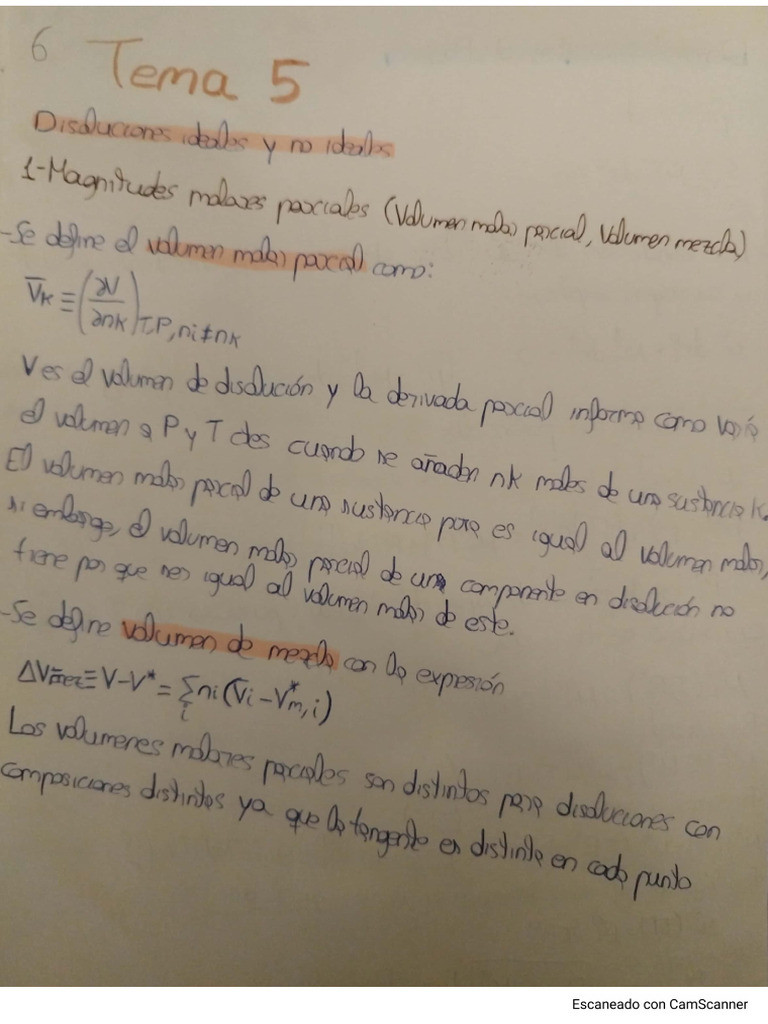 6 Tema 5
Disoluciones ideales y no ideales
1-Magnitudes molares parciales (Volumen molar parcial, Volumen mezcla)
-Se define el volumen molar parcial como:
V̄k ≡ (∂V/∂nk)T,P,ni≠nk
V es el volumen de disolución y la derivada parcial informa como varía
el volumen a P y T ctes cuando se añaden nk moles de una sustancia k.
El volumen molar parcial de una sustancia pura es igual al volumen molar,
si embargo, el volumen molar parcial de un componente en disolución no
tiene por que ser igual al volumen molar de este.
-Se define volumen de mezcla con la expresión
ΔVmez ≡ V-V* = Σi ni(V̄i-V*m,i)
Los volumenes molares parciales son distintos para disoluciones con
composiciones distintas ya que la tangente es distinta en cada punto
Escaneado con CamScanner